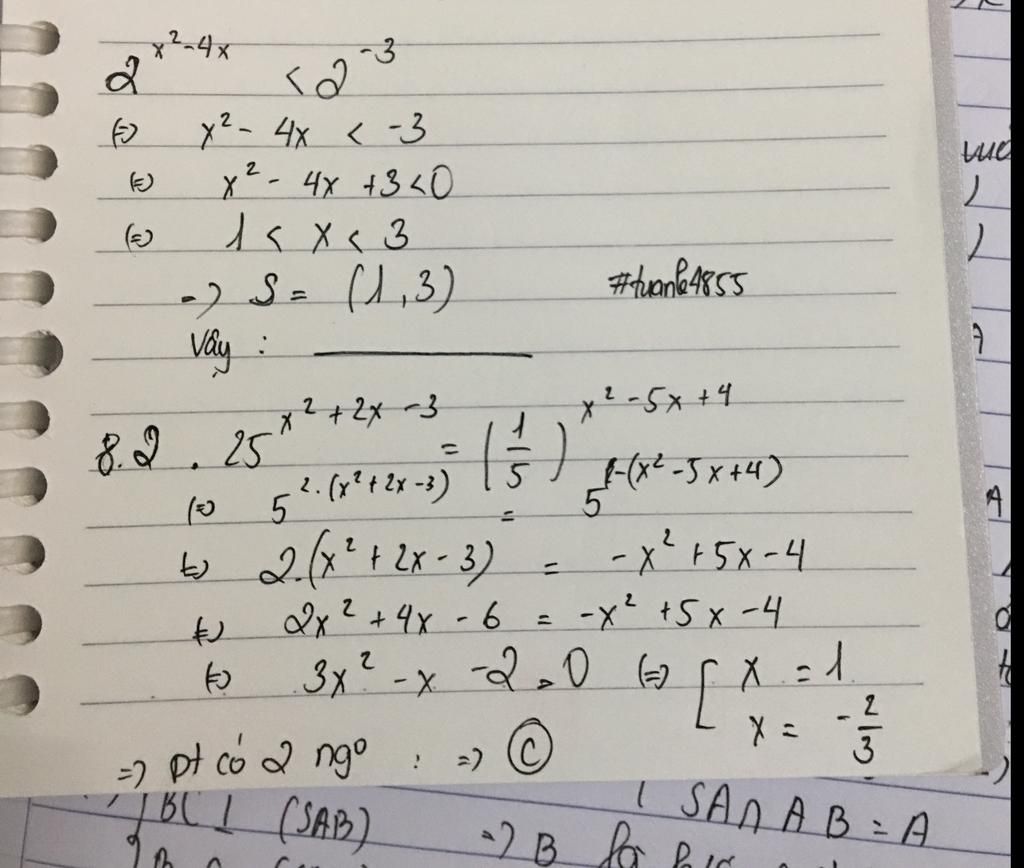 2^{x²-4x} < 2^{-3}
(=) x² - 4x < -3
(=) x² - 4x + 3 < 0
(=) 1 < x < 3
=> S = (1,3) #tuanle4855
Vậy :
8.2 . 25^{x²+2x-3} = (1/5)^{x²-5x+4}
(=) 5^{2.(x²+2x-3)} = 5^{-(x²-5x+4)}
(=) 2.(x² + 2x - 3) = -x² + 5x - 4
(=) 2x² + 4x - 6 = -x² + 5x - 4
(=) 3x² - x - 2 = 0 (=) [ x = 1
x = -2/3
=> pt có 2 ngº : => C
BC ⊥ (SAB) => B
SA ∩ AB = A